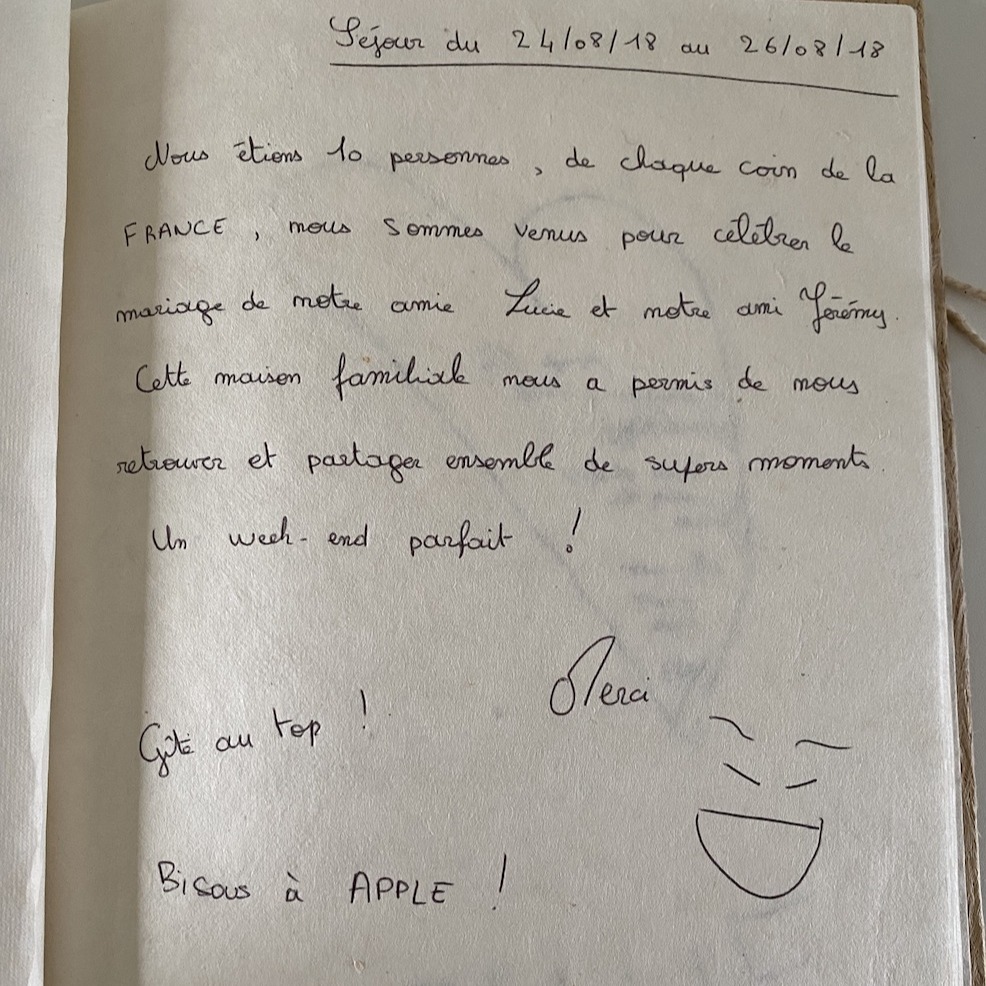 Séjour du 24/08/18 au 26/08/18
Nous étions 10 personnes, de chaque coin de la
FRANCE, nous sommes venus pour célébrer le
mariage de notre amie Lucie et notre ami Jérémy.
Cette maison familiale nous a permis de nous
retrouver et partager ensemble de supers moments.
Un week-end parfait !
Merci
Gîte au top !
Bisous à APPLE !